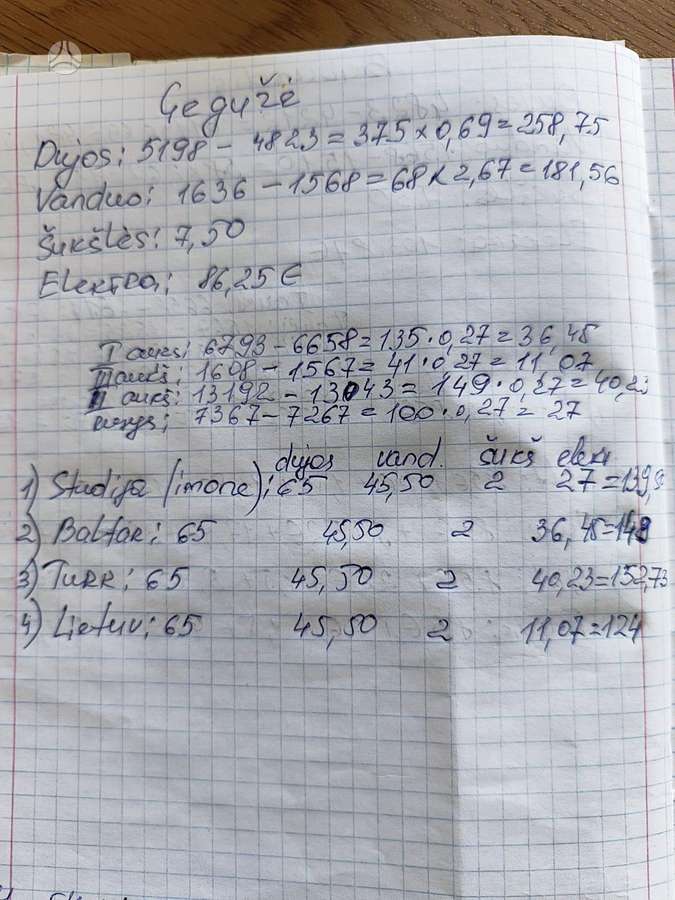 Gegužė
Dujos: 5198 - 4823 = 375 x 0,69 = 258,75
Vanduo: 1636 - 1568 = 68 x 2,67 = 181,56
Šukšlės: 7,50
Elektra: 86,25 €
I aukš: 6793 - 6658 = 135 · 0,27 = 36,45
III aukš: 1608 - 1567 = 41 · 0,27 = 11,07
II aukš: 13192 - 13043 = 149 · 0,27 = 40,23
rusys: 7367 - 7267 = 100 · 0,27 = 27
dujos vand. šukš elekt
1) Studija (imone): 65 45,50 2 27 = 139,5
2) Baltar: 65 45,50 2 36,45 = 149
3) Turk: 65 45,50 2 40,23 = 152,73
4) Lietuv: 65 45,50 2 11,07 = 124